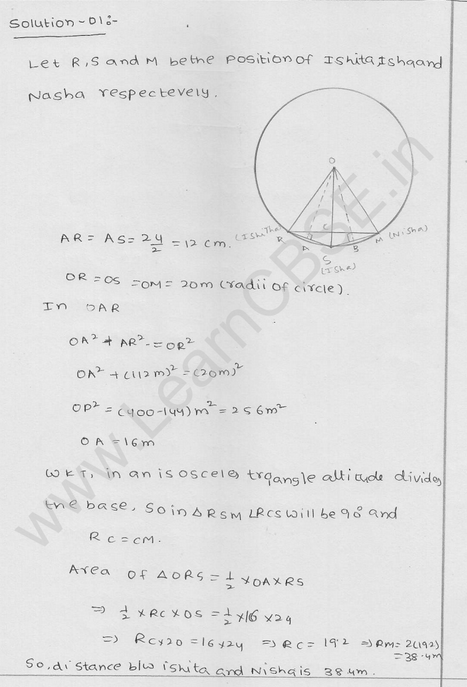 Solution-01:-
Let R,S and M bethe position of Ishita,Ishaand
Nasha respectevely.
O
C
R
(Ishitha)
A
B
M (Nisha)
S
(Isha)
AR = AS = 24/2 = 12 cm.
OR = OS = OM = 20m (radii of circle).
In OAR
OA² + AR² = OR²
OA² + (112m)² = (20m)²
OP² = (400-144)m² = 256m²
OA = 16m
WKT, in an isosceles trqangle altitude divides
the base, So in ΔRSM ∠RCS will be 90° and
RC = CM.
Area of ΔORS = 1/2 × OA × RS
⇒ 1/2 × RC × OS = 1/2 × 16 × 24
⇒ RC×20 = 16×24 ⇒ RC = 19.2 ⇒ RM = 2(19.2)
= 38.4m
So, distance b/w ishita and Nisha is 38.4m.
www.LearnCBSE.in